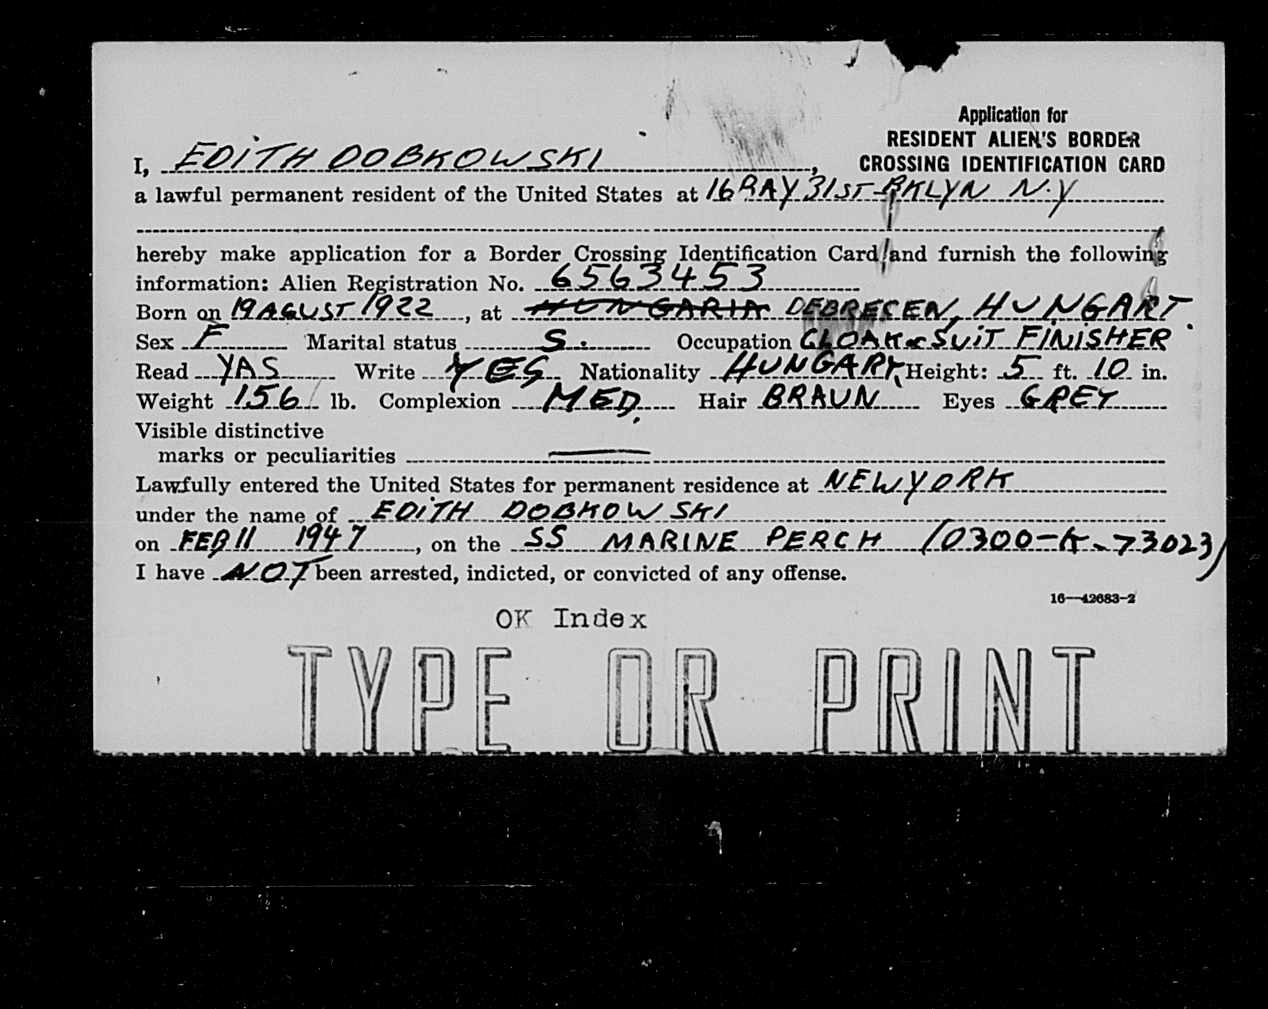 Application for
RESIDENT ALIEN'S BORDER
CROSSING IDENTIFICATION CARD
I, EDITH DOBKOWSKI,
a lawful permanent resident of the United States at 16 BAY 31ST BKLYN N.Y
hereby make application for a Border Crossing Identification Card and furnish the following
information: Alien Registration No. 6563453
Born on 19 AGUST 1922, at HUNGARIA DEBRECEN, HUNGARY
Sex F Marital status S. Occupation CLOAK & SUIT FINISHER
Read YAS Write YES Nationality HUNGARY Height: 5 ft. 10 in.
Weight 156 lb. Complexion MED. Hair BRAUN Eyes GREY
Visible distinctive
marks or peculiarities —
Lawfully entered the United States for permanent residence at NEW YORK
under the name of EDITH DOBKOWSKI
on FEB 11 1947, on the SS MARINE PERCH (0300-K-73023)
I have NOT been arrested, indicted, or convicted of any offense.
16—42683-2
OK Index
TYPE OR PRINT